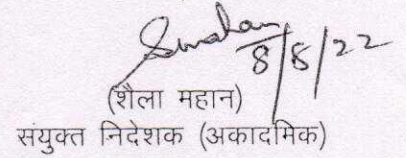 8/8/22
(शैला महान)
संयुक्त निदेशक (अकादमिक)